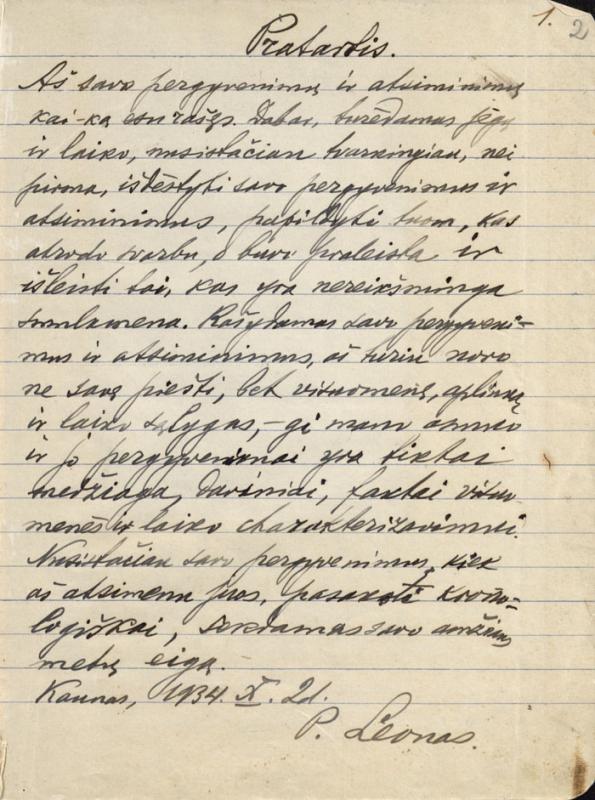 1. 2
Pratartis.
Aš savo pergyvenimų ir atsiminimų
kai-ką esu rašęs. Dabar, turėdamas jėgų
ir laiko, nusistačiau tvarkingiau, nei
pirma, išdėstyti savo pergyvenimus ir
atsiminimus, papildyti tuom, kas
atrodo svarbu, o buvo praleista ir
išleisti tai, kas yra nereikšminga
smulkmena. Rašydamas savo pergyveni-
mus ir atsiminimus, aš turiu noro
ne savę piešti, bet visuomenę, aplinką
ir laiko sąlygas, - gi mano asmuo
ir jo pergyvenimai yra tiktai
medžiaga, daviniai, faktai visuo-
menės ir laiko charakterizavimui.
Nusistačiau savo pergyvenimus, kiek
aš atsimenu juos, pasakoti krono-
logiškai, sekdamas savo amžiaus
metų eigą.
Kaunas, 1934. X. 2d.
P. Leonas.